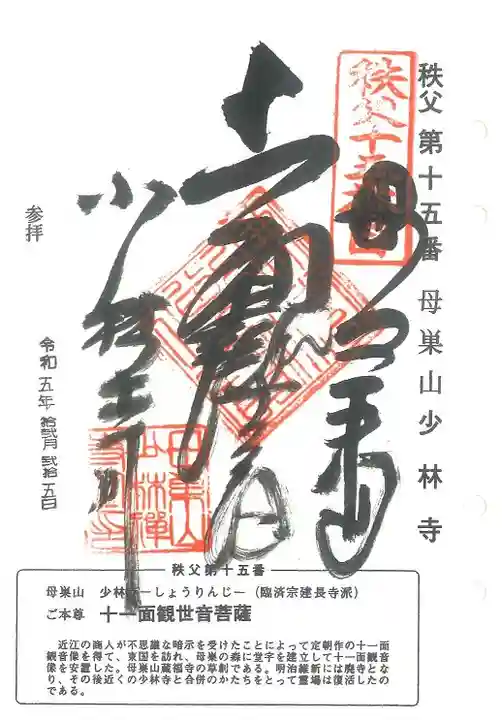 秩父 第十五番 母巣山少林寺
秩父十五番
母巣山
十一面観世音
少林寺
参拝
令和五年 拾弐月 弐拾五日
秩父第十五番
母巣山 少林寺ーしょうりんじー(臨済宗建長寺派)
ご本尊 十一面観世音菩薩
近江の商人が不思議な暗示を受けたことによって定朝作の十一面
観音像を得て、東国を訪れ、母巣の森に堂宇を建立して十一面観音
像を安置した。母巣山蔵福寺の草創である。明治維新には廃寺とな
り、その後近くの少林寺と合併のかたちをとって霊場は復活したの
である。